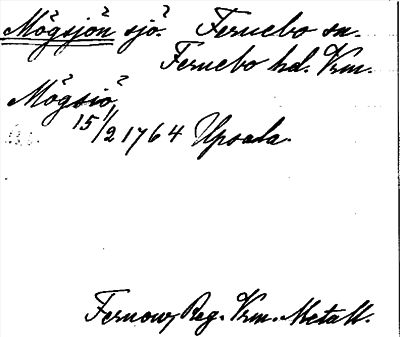 Mögsjön sjö. Fernebo sn.
Fernebo hd. Vrm.
Mögsiö,
15/2 1764 Upsala.
Fernow, Reg. Vrm. Metall.